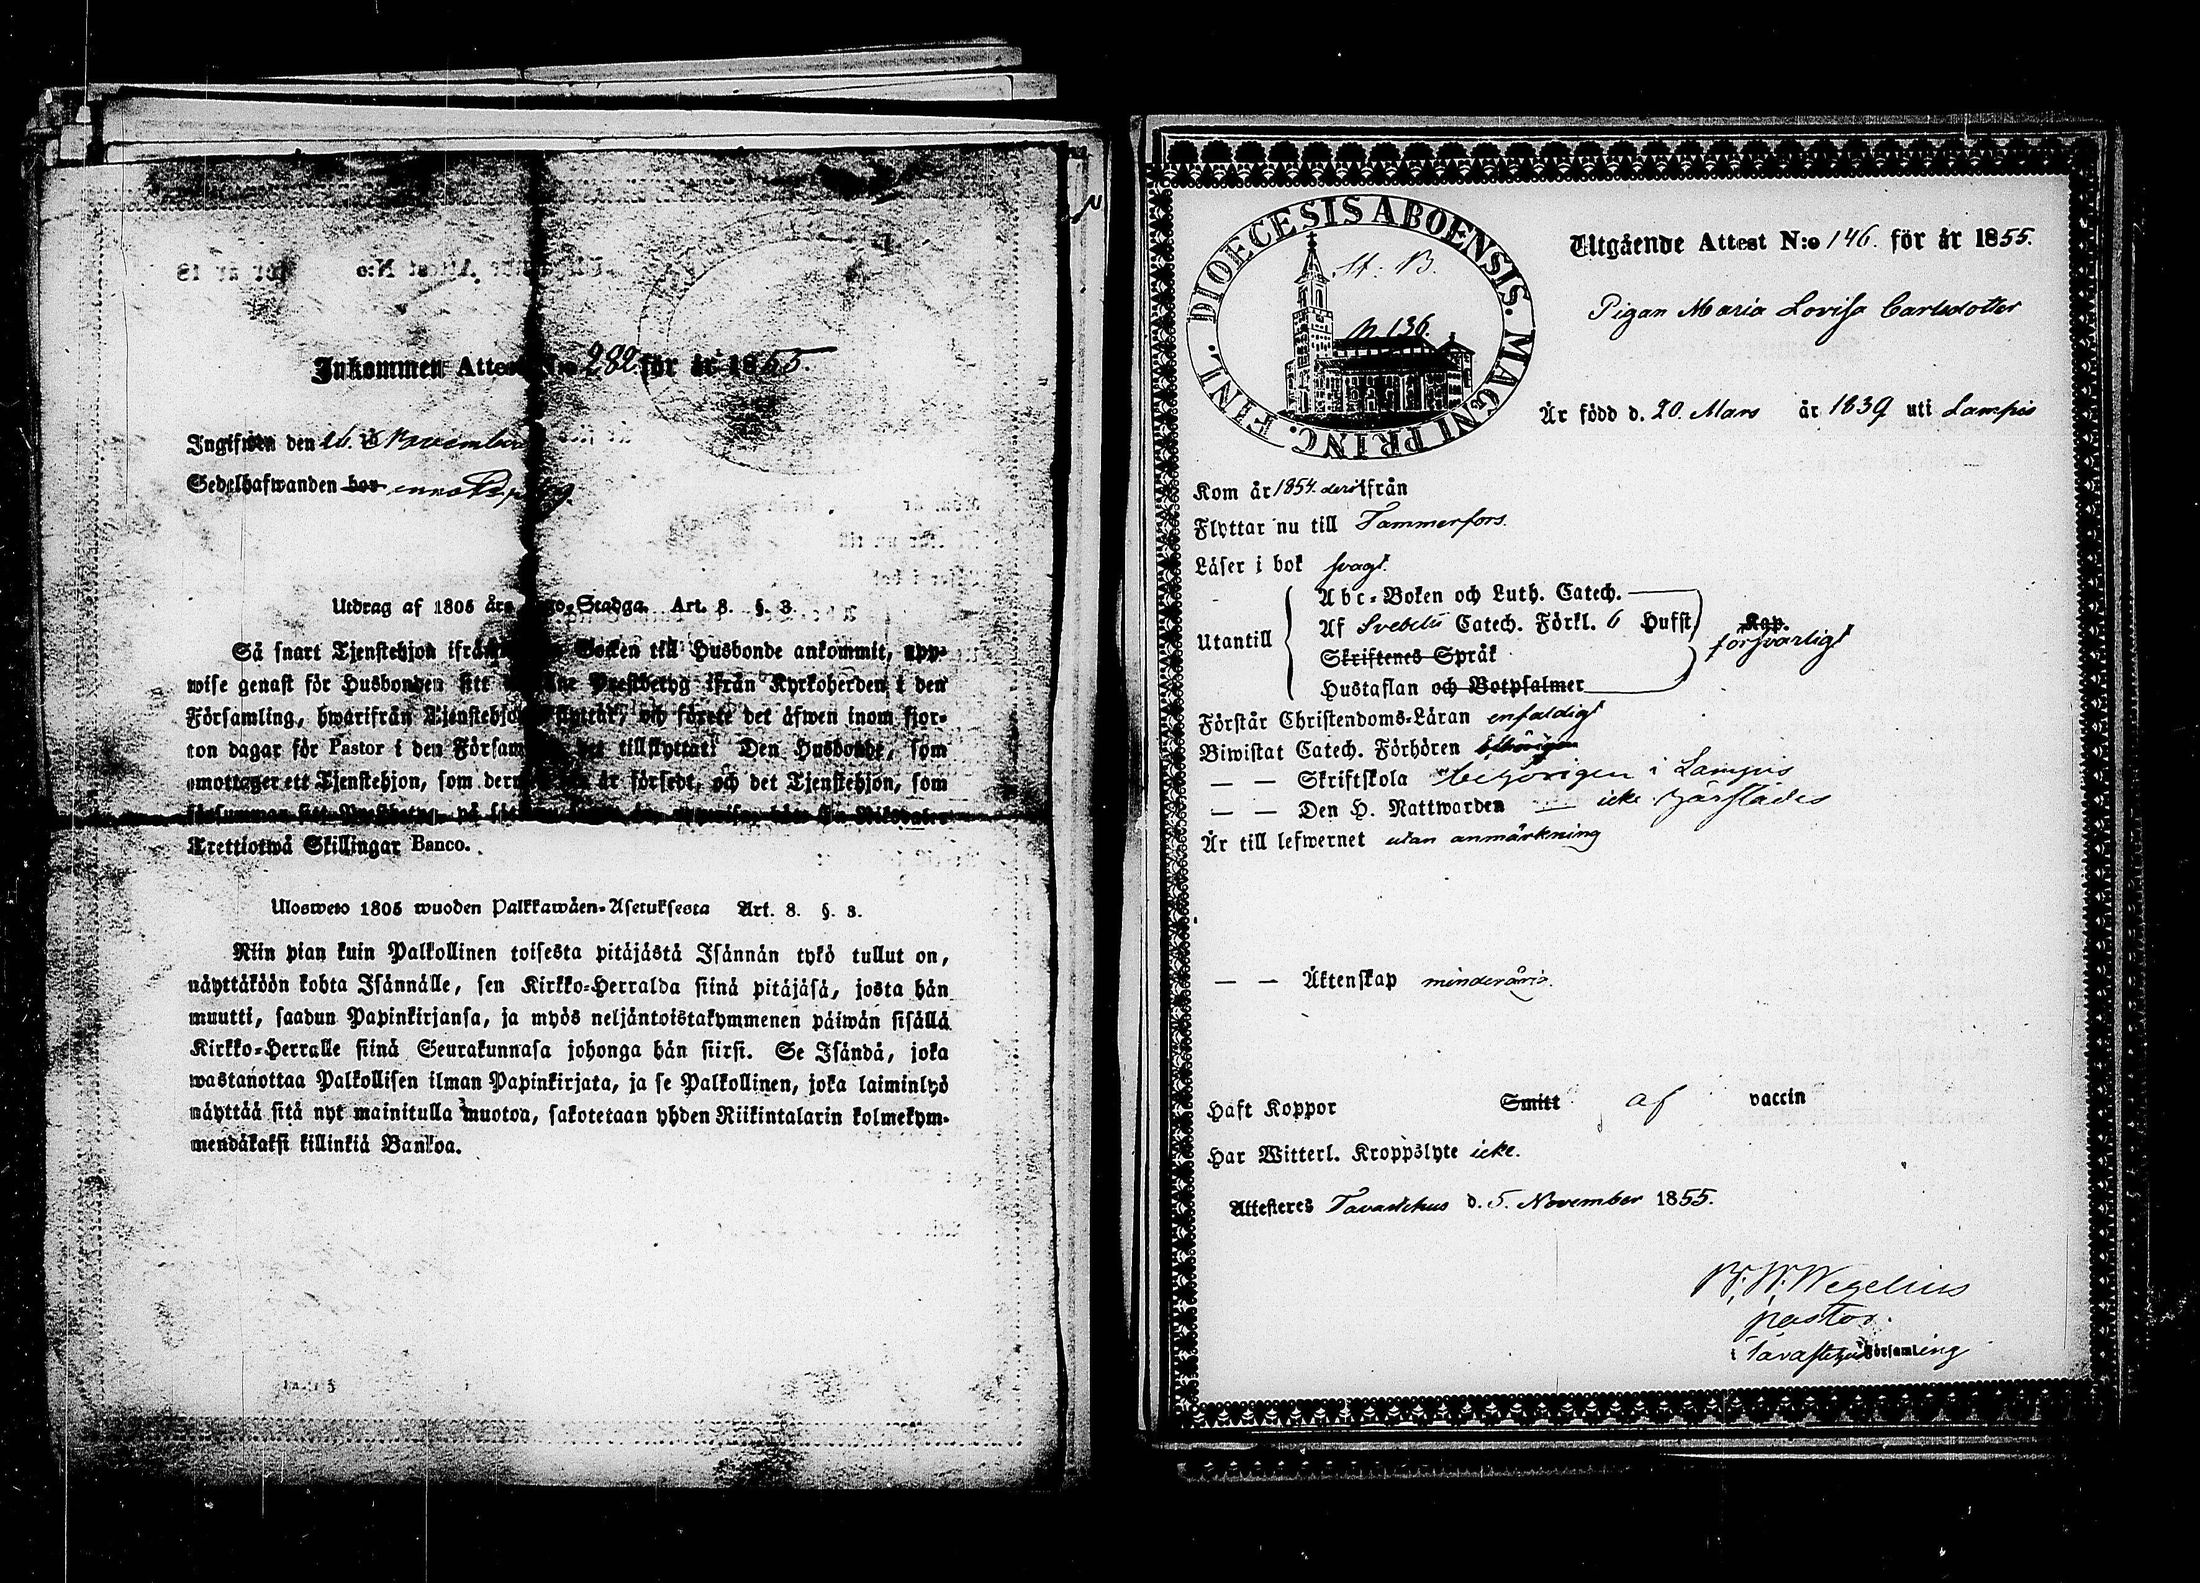 Inkommen Attest N:o 282 för år 1855.
Ingifwen den 16. November
Sedelhafwanden bor
Utdrag af 1805 års Lego-Stadga. Art. 8. §. 3.
Så snart Tjenstehjon ifrån Socken till Husbonde ankommit, upp-
wise genast för Husbonden sitt Prestbetyg ifrån Kyrkoherden i den
Församling, hwarifrån Tjenstehjonet flyttat, och förete det äfwen inom fjor-
ton dagar för Pastor i den Församling det tillflyttat. Den Husbonde, som
emottager ett Tjenstehjon, som dermed är försedt, och det Tjenstehjon, som
försummar sitt Prestbetyg på
Trettiotwå Skillingar Banco.
Ulosweto 1805 wuoden Palkkawäen-Asetuksesta Art. 8. §. 3.
Niin pian kuin Palkollinen toisesta pitäjästä Isännän tykö tullut on,
näyttäköön kohta Isännälle, sen Kirkko-Herralda siinä pitäjäsä, josta hän
muutti, saadun Papinkirjansa, ja myös neljäntoistakymmenen päiwän sisällä
Kirkko-Herralle siinä Seurakunnasa johonga hän siirsi. Se Isändä, joka
wastanottaa Palkollisen ilman Papinkirjata, ja se Palkollinen, joka laiminlyö
näyttää sitä nyt mainitulla muotoa, sakotetaan yhden Riikintalarin kolmekym-
mendäkaksi killinkiä Bankoa.
DIOECESIS ABOENSIS. MAGNI PRINC. FINL.
N 136.
Utgående Attest N:o 146. för år 1855.
Pigan Maria Lovisa Carlsdotter
Är född d. 20. Mars år 1839 uti Lampis
Kom år 1854. derifrån
Flyttar nu till Tammerfors.
Läser i bok svagt.
Abc-Boken och Luth. Catech.
Utantill Af Svebelii Catech. Förkl. 6 Hufst. Kap. försvarligt
Skriftenes Språk
Hustaflan och Botpsalmer
Förstår Christendoms-Läran enfaldigt
Biwistat Catech. Förhören behörigen
— — Skriftskola behörigen i Lampis
— — Den H. Nattwarden icke härstädes
Är till lefwernet utan anmärkning
— — Äktenskap minderårig.
Haft Koppor Smitt af vaccin
Har Witterl. Kroppslyte icke.
Attesteres Tavastehus d. 5. November 1855.
W. W. Wegelius
pastor.
i Tavastehus Församling